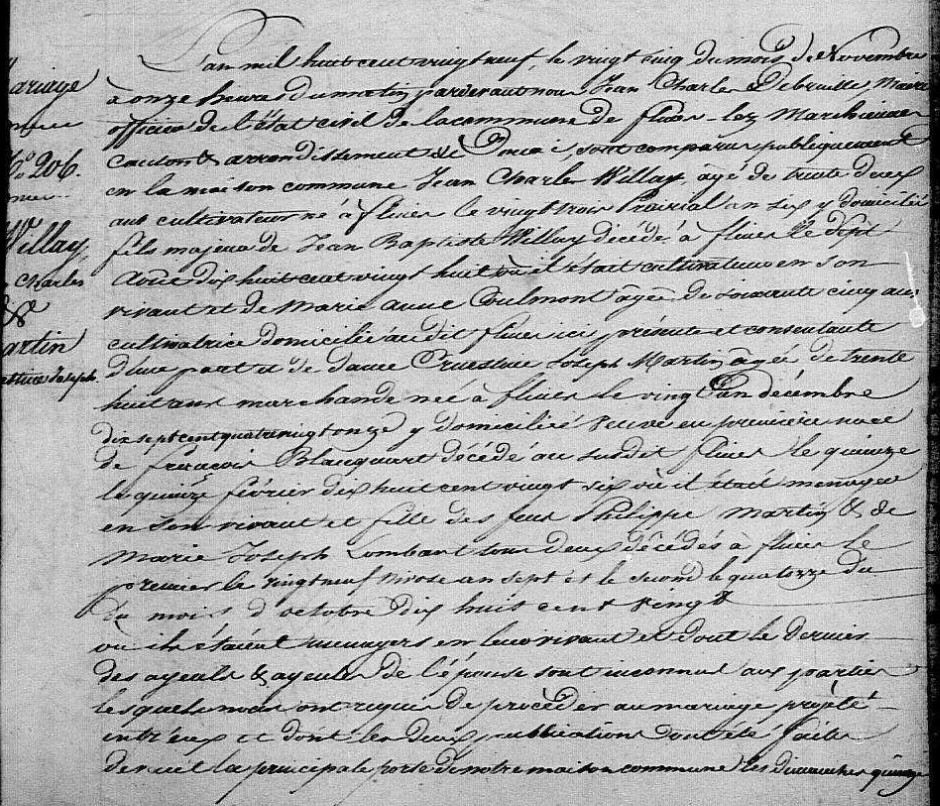 L'an mil huit cent vingt neuf, le vingt cinq du mois de Novembre
à onze heures du matin, pardevant nous Jean Charles Debruille, Maire
officier de l'état civil de la commune de flines-lez Marchiennes
canton & arrondissement de Douai, sont comparus publiquement
en la maison commune Jean Charles Willay, âgé de trente deux
ans cultivateur né à flines le vingt trois Prairial an six y domicilié
fils majeur de Jean Baptiste Willay décédé à flines le sept
Août dix huit cent vingt huit où il était cultivateur en son
vivant et de Marie anne Coulmont âgée de soixante cinq ans
cultivatrice domiciliée au dit flines ici présente et consentante
d'une part et de dame Joseph Martin, âgée de trente
huit ans marchande née à flines le vingt un décembre
dix sept cent quatrevingt onze y domiciliée veuve en première noce
de françois Blacquart décédé au susdit flines le quinze
le quinze février dix huit cent vingt six où il était ménager
en son vivant et fille des feus Philippe Martin & de
Marie Joseph Lombart tous deux décédés à flines le
premier le vingt neuf nivose an sept et le second le quatorze du
du mois d'octobre dix huit cent vingt
où ils étaient menagers en leur vivant et dont le dernier
des ayeuls & ayeules de l'épouse sont inconnus aux parties
lesquels nous ont requis de procéder au mariage projété
entr'eux et dont les deux publications dont été faites
devant la principale porte de notre maison commune les dimanches quinze
ariage
No 206.
Willay,
Charles
&
artin
Joseph